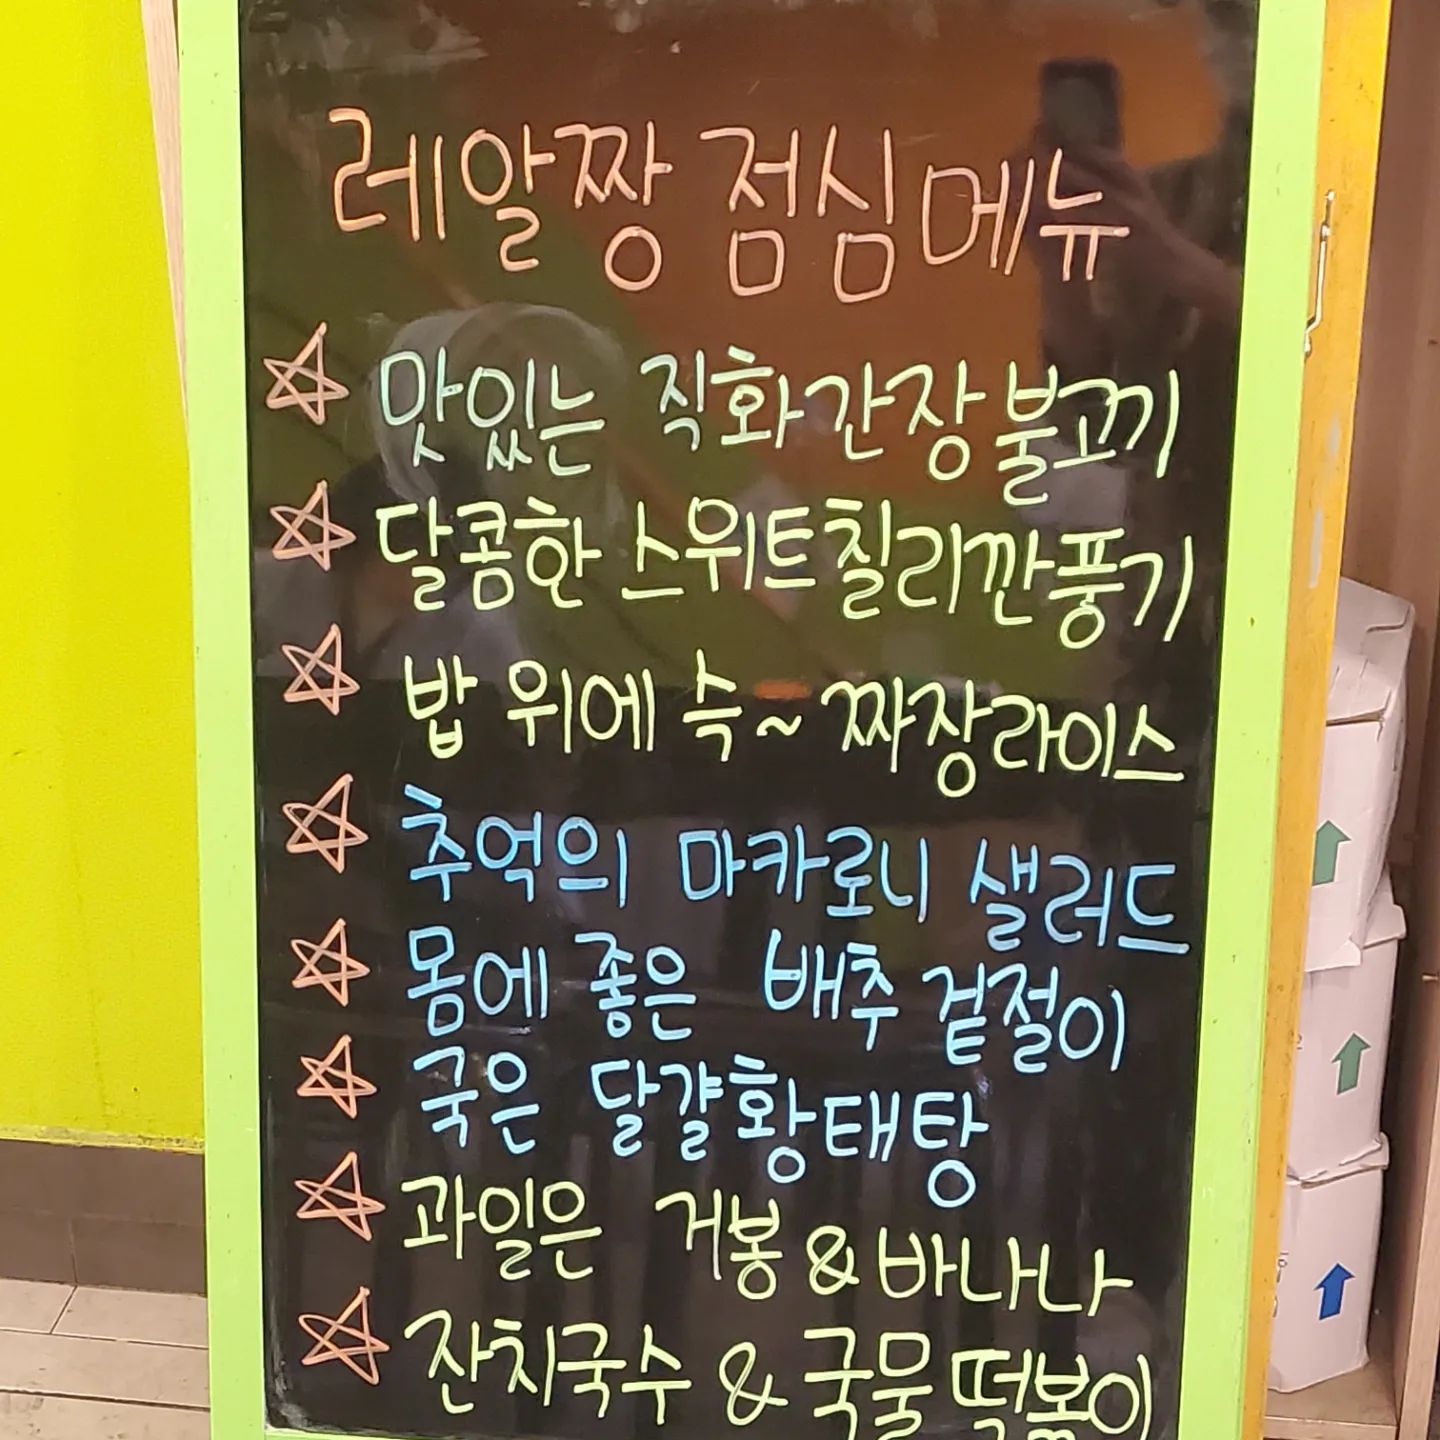 레알짱 점심메뉴
맛있는 직화간장불고기
달콤한 스위트칠리깐풍기
밥 위에 슥~ 짜장라이스
추억의 마카로니 샐러드
몸에 좋은 배추 겉절이
국은 달걀황태탕
과일은 거봉 & 바나나
잔치국수 & 국물떡볶이